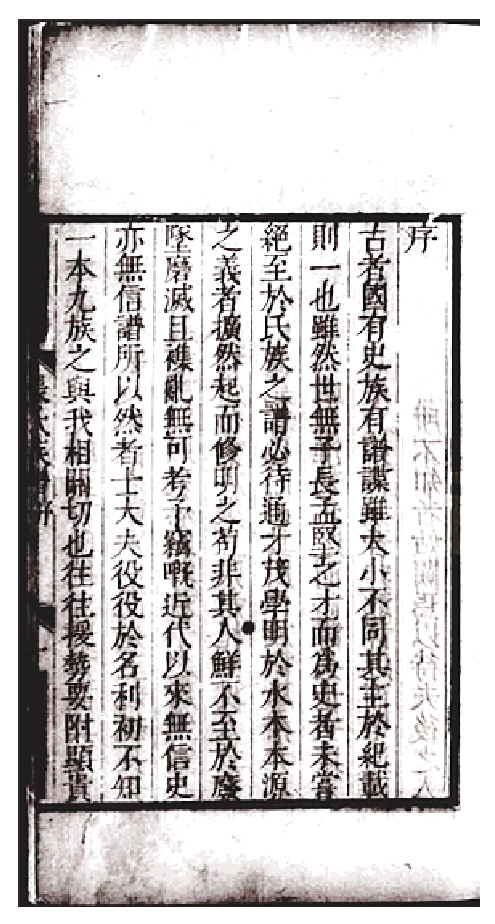 序
古者國有史族有譜諜雖大小不同其主於紀載
則一也雖然世無子長孟堅之才而爲史者未嘗
絕至於氏族之譜必待通才茂學明於水木本源
之義者擴然起而修明之苟非其人鮮不至於廢
墜磨滅且襍亂無可考予竊嘅近代以來無信史
亦無信譜所以然者士大夫役役於名利初不知
一本九族之與我相關切也往往援勢要附顯貴